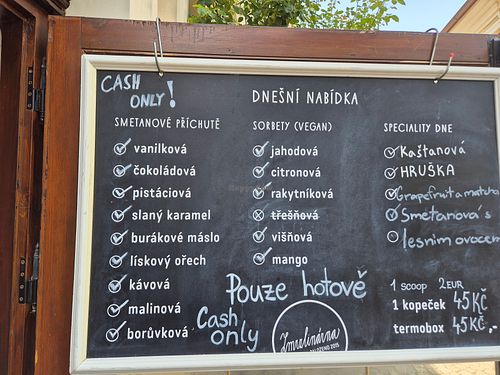 CASH ONLY!
DNEŠNÍ NABÍDKA
SMETANOVÉ PŘÍCHUTĚ
vanilková
čokoládová
pistáciová
slaný karamel
burákové máslo
lískový ořech
kávová
malinová
borůvková
SORBETY (VEGAN)
jahodová
citronová
rakytníková
třešňová
višňová
mango
SPECIALITY DNE
Kaštanová
HRUŠKA
Grapefruit a matcha
Smetanová s
lesním ovocem
Pouze hotově
Cash only
Zmrlinárna
1 scoop 2EUR
1 kopeček 45KČ
termobox 45KČ,-